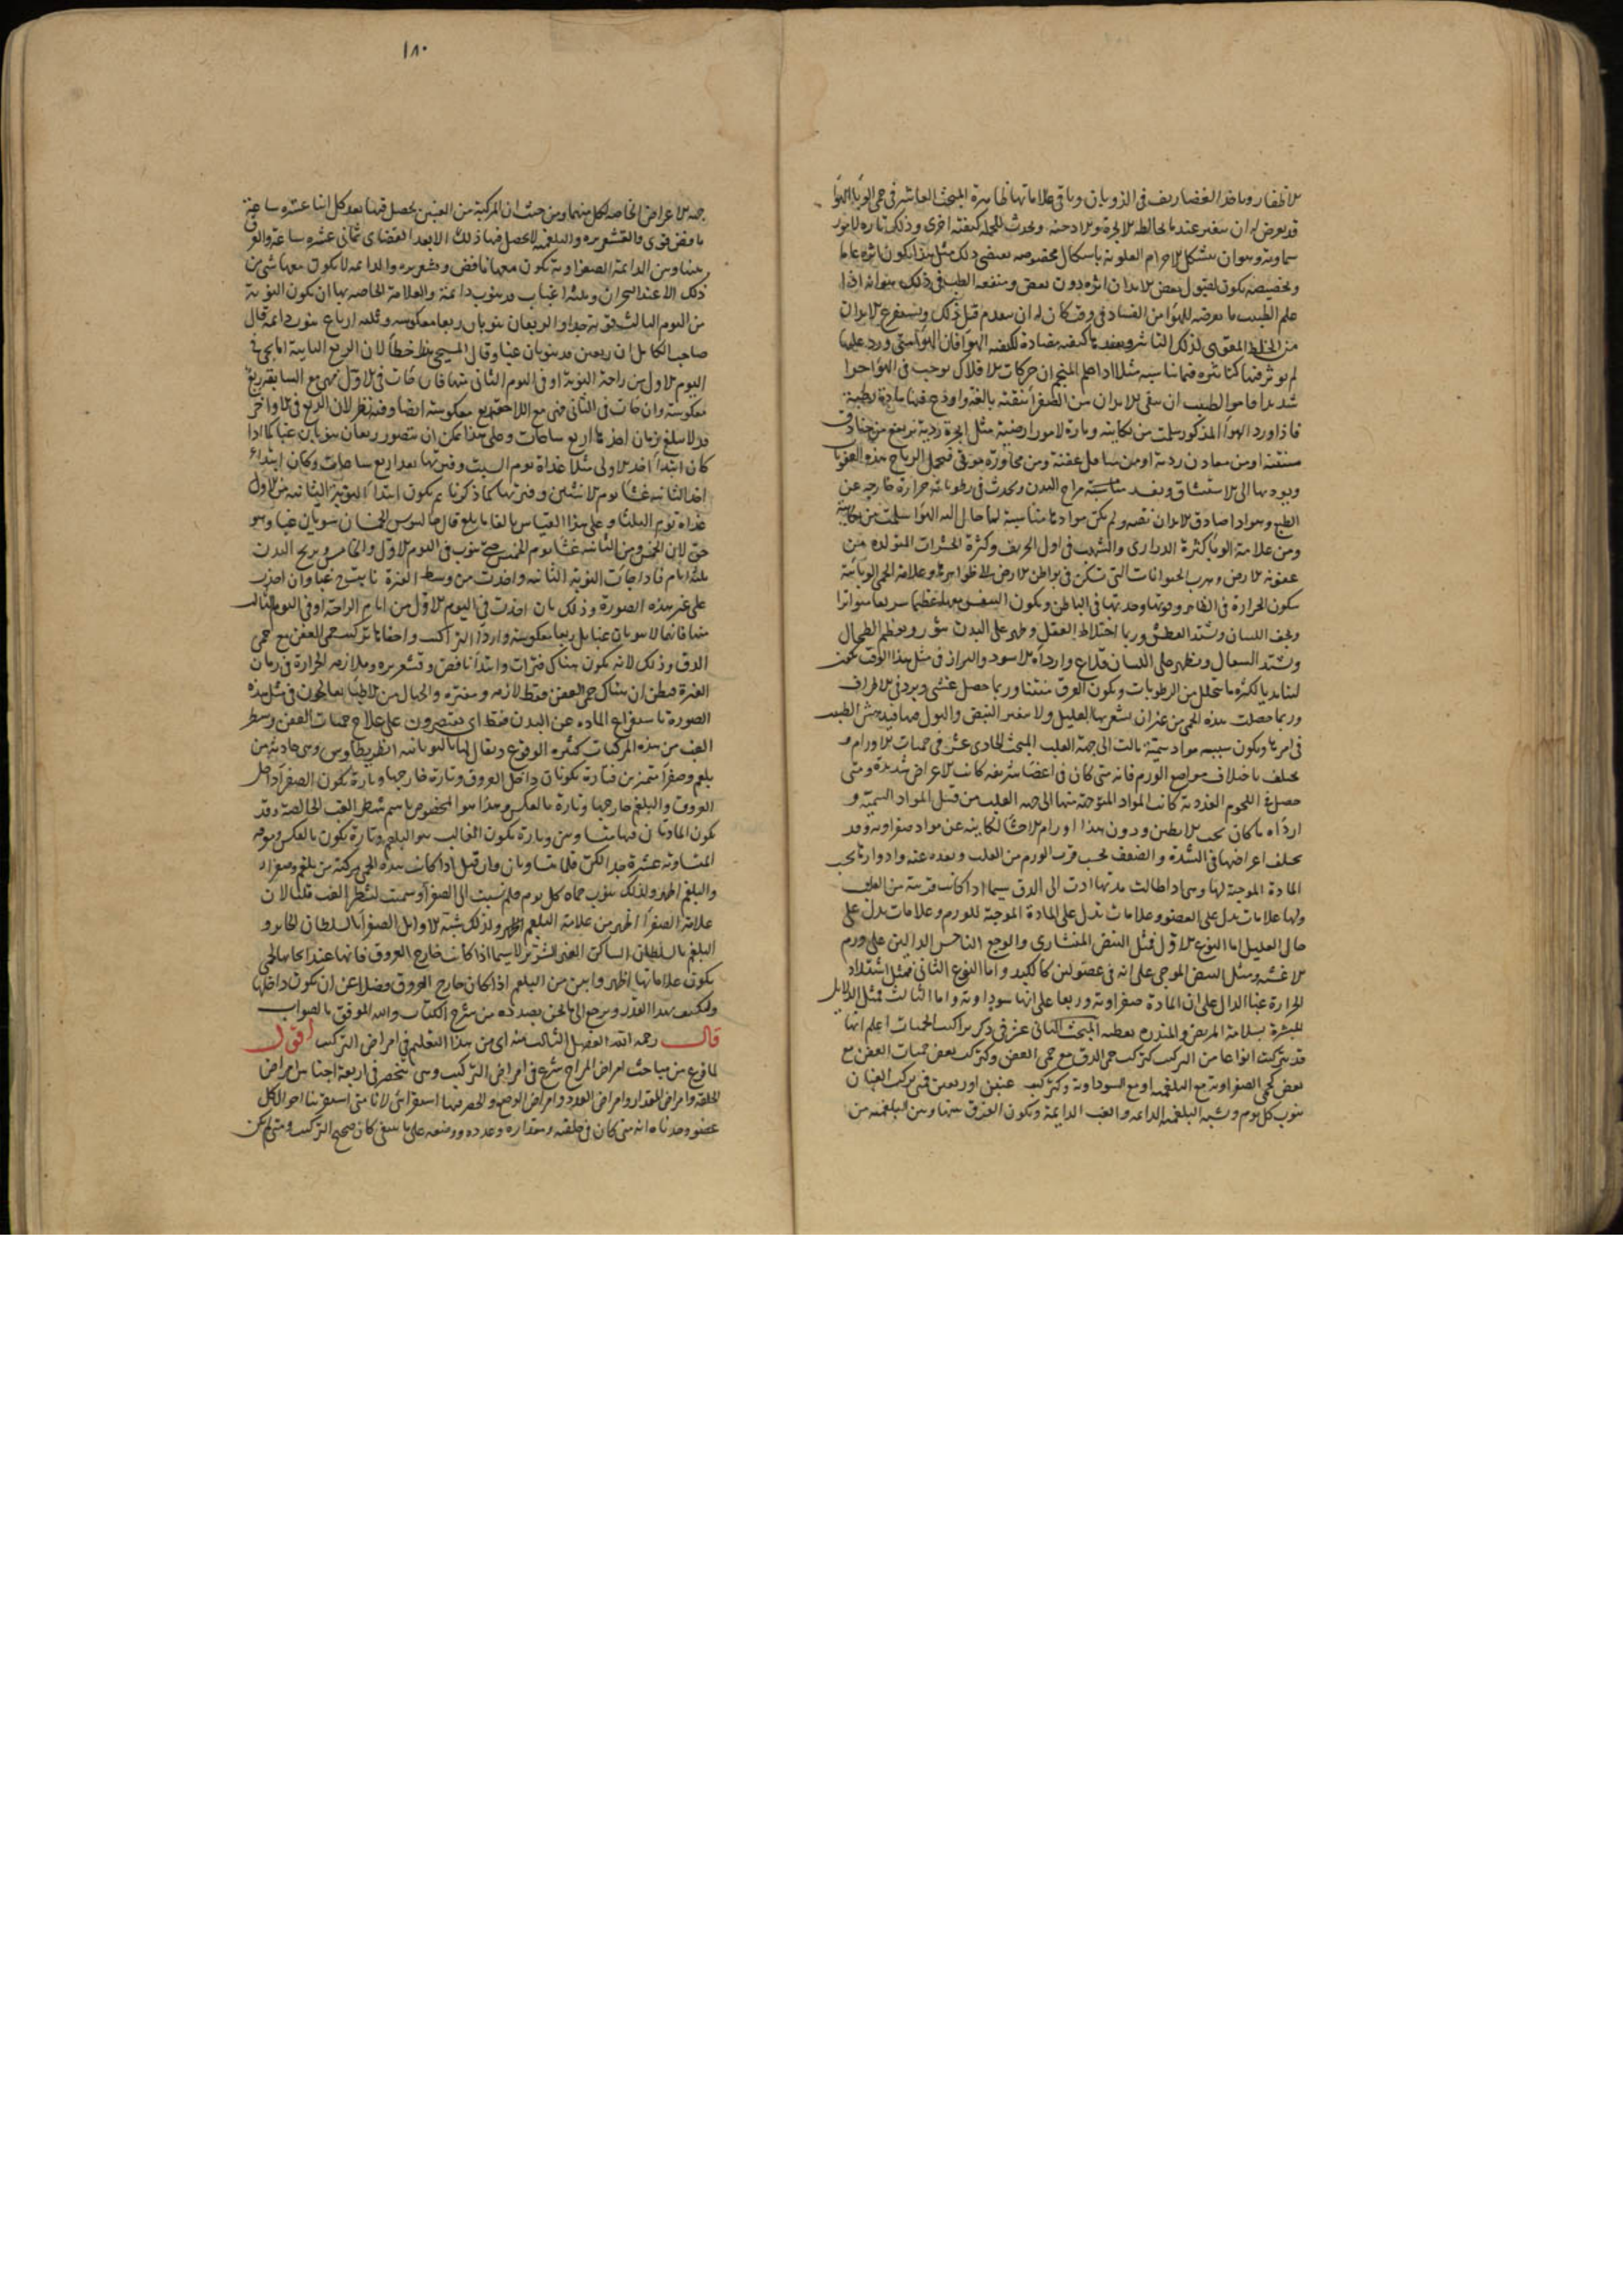 الاظفار وباقى علاماتها ظاهرة المبحث العاشر فى حمى الوبا الهوا
قد يعرض له ان يتغير عند ما يخالطه الابخرة والادخنة ويحدث للجملة كيفية اخرى وذلك تارة لامور
سماوية وهو ان يتشكل الاجرام العلوية باشكال مخصوصة يقتضى ذلك
علم الطبيب ما يعرضه للهوا من الفساد فى وقت كان له ان يتقدم قبل ذلك ويستفرغ الابدان
لم يوثر فيها كتاثيره فيما يناسبه مثلا اذا علم المنجم ان حركات الافلاك يوجب فى الهوا حرا
شديدا فامر الطبيب ان ينقى الابدان من الصفرا تنقية بالغة
فاذا ورد الهوا المذكور سلمت من نكايته وتارة لامور ارضية مثل ابخرة ردية ترتفع من خنادق
منتنة او من معادن ردية او من مباقل عفنة ومن مجاورة موتى فتحمل الرياح هذه العفونات
ويوديها الى الاستنشاق ويفسد مزاج البدن ويحدث فى رطوباته حرارة خارجة عن
الطبع
ومن علامة الوبا كثرة الدرارى والشهب فى اول الخريف وكثرة الحشرات المتولدة من
عفونة الارض وهرب الحيوانات التى تسكن فى بواطن الارض الى ظواهرها وعلامة الحمى الوبائية
سكون الحرارة فى الظاهر وقوتها وحدتها فى الباطن ويكون التنفس معها عظيما سريعا متواترا
ويجف اللسان ويشتد العطش وربما اختلاط العقل وظهر على البدن بثور ويعظم الطحال
ويشتد السعال ويظهر على اللسان قلاع وارداه الاسود والبراز فى مثل هذا الوقت يكون
لينا زبديا لكثرة ما يتحلل من الرطوبات ويكون العرق منتنا وربما حصل غشى وبرد فى الاطراف
وربما حصلت هذه الحمى من غير ان يشعر بها العليل ولا يتغير النبض والبول فيها فيدهش الطبيب
فى امرها ويكون سببه مواد سمية مالت الى جهة القلب المبحث الحادى عشر فى حميات الاورام و
يختلف باختلاف مواضع الورم فانه متى كان فى اعضا شريفة كانت الاعراض شديدة ومتى
حصل فى اللحوم الغددية كانت المواد المتوجهة منها الى جهة القلب من قبيل المواد السمية و
ارداه ما كان تحت الابطين ودون هذا اورام الاحشا الكاينة عن مواد صفراوية وقد
يختلف اعراضها فى الشدة والضعف بحسب قرب الورم من القلب وبعده عنه وادوارها بحسب
المادة الموجبة لها وهى اذا طالت مدتها ادت الى الدق سيما اذا كانت قريبة من القلب
ولها علامات تدل على العضو وعلامات تدل على المادة الموجبة للورم وعلامات تدل على
حال العليل اما النوع الاول فمثل النبض المنشارى والوجع الناخس الدالين على ورم
الاغشية ومثل النبض الموجى على انه فى عضو لين كالكبد واما النوع الثانى فمثل اشتداد
الحرارة غبا الدال على ان المادة صفراوية وربعا على انها سوداوية واما الثالث فمثل الدلايل
المبشرة بسلامة المريض والمنذرة بعطبه المبحث الثانى عشر فى ذكر تراكيب الحميات اعلم انها
قد يتركب انواعا من التركيب كتركيب حمى الدق مع حمى العفن وكتركيب بعض حميات العفن مع
بعض كحمى الصفراوية مع البلغمية او مع السوداوية وكتركيب غبين او ربعين فتركيب الغبان
ينوب كل يوم ويشبه البلغمية الدايمة والغب الدايمة ويكون الفرق بينها وبين البلغمية من
١٨٠
جهة الاعراض الخاصة لكل منهما ومن حيث ان المركبة من الغبين يحصل فيها بعد كل اثنا عشرة ساعة
نافض قوى والقشعريرة والبلغمية لا يحصل فيها ذلك الا بعد انقضاى ثمانى عشره ساعة والفرق
بينها وبين الدايمة الصفراوية يكون معها نافض وقشعريرة والدايمة لا يكون معها شى من
ذلك الا عند البحران وثلثة اغباب قد ينوب دايمة والعلامة الخاصة بها ان يكون النوبة
من اليوم الثالث قوية جدا والربعان ينوبان ربعا معكوسة وثلثه ارباع ينوب دايمة قال
صاحب الكامل ان ربعين قد ينوبان غبا وقال المسيحى هذا خطأ لان الربع الثانية اما يجى فى
اليوم الاول من راحة النوبة او فى اليوم الثانى منها فان كانت فى الاول فهى مع السابقة ربع
معكوسة وان كانت فى الثانى فهى مع اللاحقة ربع معكوسة ايضا وفيه نظر لان الربع فى الاواخر
قد لا يبلغ زمان اخذها اربع ساعات وعلى هذا يمكن ان يتصور ربعان ينوبان غبا كما اذا
كان ابتداء اخذ الاولى مثلا غداة يوم السبت وفترتها بعد اربع ساعات وكان ابتداء
اخذ الثانية عشا يوم الاثنين وفترتها كما ذكرنا ثم يكون ابتداء النوبة الثانية من الاول
غداة يوم الثلثا وعلى هذا القياس بالغا ما بلغ قال جالينوس الخمسان ينوبان غبا وهو
حق لان الخمس
على غير هذه الصورة وذلك بان اخذت فى اليوم الاول من ايام الراحة او فى اليوم الثالث
منها فانها لا ينوبان غبا بل ربعا معكوسة واردا التراكيب واخفاها تركيب حمى العفن مع حمى
الدق وذلك لانه يكون هناك فترات وابتدا نافض وقشعريرة وملازمة الحرارة فى زمان
الفترة فيظن ان هناك حمى العفن فقط لازمة ومفترة والجهال من الاطبا يعالجون فى مثل هذه
الصورة باستفراغ المادة عن البدن فقط اى يقتصرون على علاج حميات العفن وشطر
الغب من هذه المركبات كثيرة الوقوع ويقال لها باليونانية انطريطاوس وهى حادثة من
بلغم وصفرا متميزين فتارة يكونان داخل العروق وتارة خارجها وتارة يكون الصفرا داخل
العروق والبلغم خارجها وتارة بالعكس وهذا هو المخصوص باسم شطر الغب الخالصة وقد
يكون المادتان فيها متساويتين وتارة يكون الغالب هو البلغم وتارة يكون بالعكس
والبلغم اظهر ولذلك ينوب حماه كل يوم فلم نسبت الى الصفرا وسميت بشطر الغب قلنا لان
علامة الصفرا اظهر من علامة البلغم ولذلك شبه الاوايل الصفرا بالسلطان الجاير و
البلغم بالسلطان الساكن الغير الشرير لا سيما اذا كانت خارج العروق
يكون علاماتها اظهر وابين من البلغم اذا كان خارج العروق فضلا عن ان يكون داخلها
ولنكتف بهذا القدر ونرجع الى ما نحن بصدده من شرح الكتاب والله الموفق بالصواب
قال رحمه الله الفصل الثالث منه اى من هذا التعليم فى امراض التركيب اقول
لما فرغ من مباحث امراض المزاج شرع فى امراض التركيب وهى تنحصر فى اربعة اجناس امراض
الخلقة وامراض المقدار وامراض العدد وامراض الوضع والحصر فيها استقرائى لانا متى استقرينا احوال كل
عضو وجدناه انه متى كان فى خلقته ومقداره وعدده ووضعه على ما ينبغى كان صحيح التركيب ومتى لم يكن